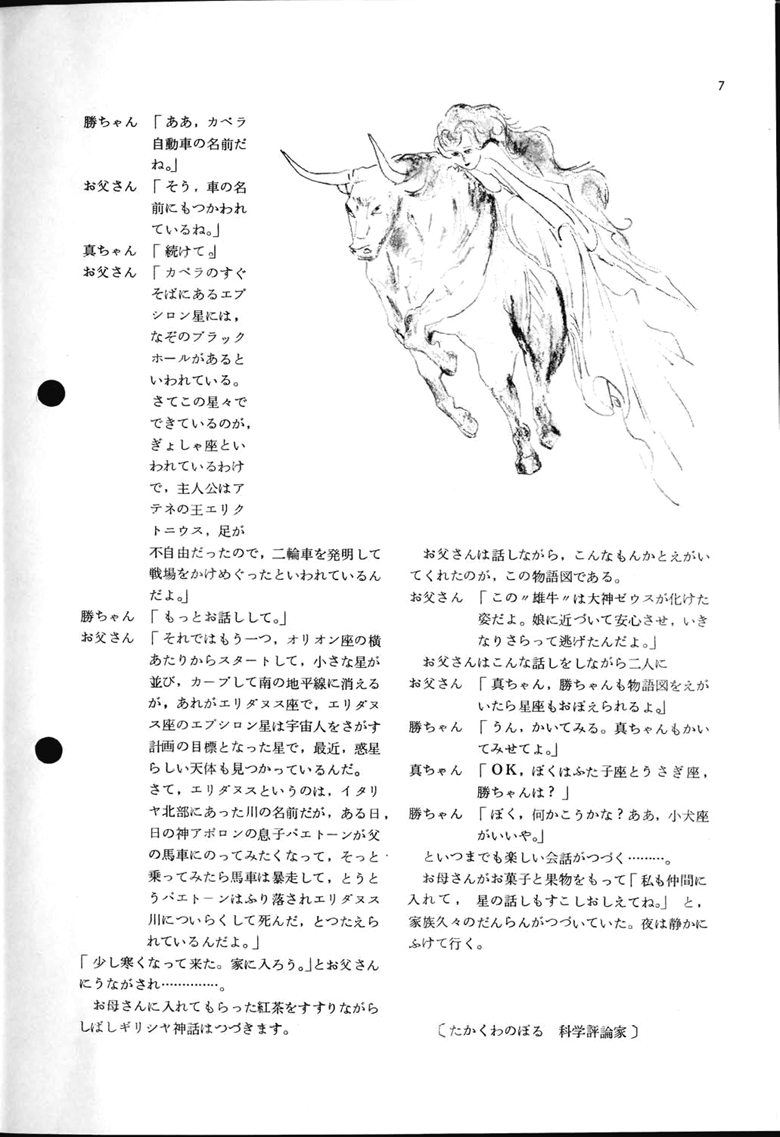 7
勝ちゃん 「ああ，カペラ
自動車の名前だ
ね。」
お父さん 「そう，車の名
前にもつかわれ
ているね。」
真ちゃん 「続けて。」
お父さん 「カペラのすぐ
そばにあるエプ
シロン星には，
なぞのブラック
ホールがあると
いわれている。
さてこの星々で
できているのが，
ぎょしゃ座とい
われているわけ
で，主人公はア
テネの王エリク
トニウス，足が
不自由だったので，二輪車を発明して
戦場をかけめぐったといわれているん
だよ。」
勝ちゃん 「もっとお話しして。」
お父さん 「それではもう一つ，オリオン座の横
あたりからスタートして，小さな星が
並び，カーブして南の地平線に消える
が，あれがエリダヌス座で，エリダヌ
ス座のエプシロン星は宇宙人をさがす
計画の目標となった星で，最近，惑星
らしい天体も見つかっているんだ。
さて，エリダヌスというのは，イタリ
ヤ北部にあった川の名前だが，ある日，
日の神アポロンの息子パエトーンが父
の馬車にのってみたくなって，そっと
乗ってみたら馬車は暴走して，とうと
うパエトーンはふり落されエリダヌス
川についらくして死んだ，とつたえら
れているんだよ。」
「少し寒くなって来た。家に入ろう。」とお父さん
にうながされ…………。
お母さんに入れてもらった紅茶をすすりながら
しばしギリシヤ神話はつづきます。
お父さんは話しながら，こんなもんかとえがい
てくれたのが，この物語図である。
お父さん 「この〃雄牛〃は大神ゼウスが化けた
姿だよ。娘に近づいて安心させ，いき
なりさらって逃げたんだよ。」
お父さんはこんな話しをしながら二人に
お父さん 「真ちゃん，勝ちゃんも物語図をえが
いたら星座もおぼえられるよ。」
勝ちゃん 「うん，かいてみる。真ちゃんもかい
てみせてよ。」
真ちゃん 「OK，ぼくはふた子座とうさぎ座，
勝ちゃんは？」
勝ちゃん 「ぼく，何かこうかな？ああ，小犬座
がいいや。」
といつまでも楽しい会話がつづく………。
お母さんがお菓子と果物をもって「私も仲間に
入れて， 星の話しもすこしおしえてね。」と，
家族久々のだんらんがつづいていた。夜は静かに
ふけて行く。
〔たかくわのぼる 科学評論家〕